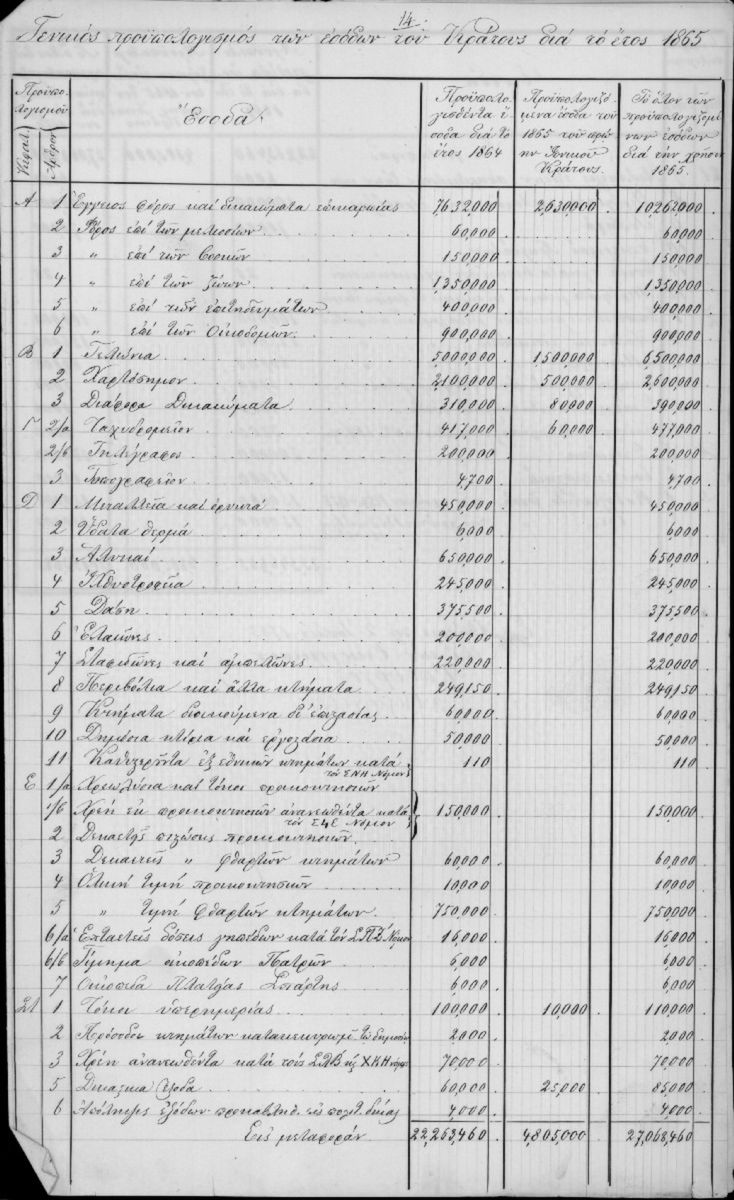 14.
Γενικός προϋπολογισμός των εσόδων του Κράτους διά το έτος 1865
Προϋπολογισμού
Κεφάλ. Άρθρον
Έσοδα
Προϋπολογισθέντα έσοδα διά το έτος 1864
Προϋπολογιζόμενα έσοδα του 1865 του πρώην Ιονικού Κράτους.
Το όλον των προϋπολογιζομένων εσόδων διά την χρήσιν 1865.
Α 1 Έγγειος φόρος και δικαιώματα επικαρπίας 7,632,000 2,630,000 10,262,000
2 Φόρος επί των μελισσίων 60,000 60,000
3 " επί των βοσκών 150,000 150,000
4 " επί των ζώων 1,350,000 1,350,000
5 " επί των επιτηδευμάτων 400,000 400,000
6 " επί των Οικοδομών. 900,000 900,000
Β 1 Τελώνια 5,000,000 1,500,000 6,500,000
2 Χαρτόσημον 2,100,000 500,000 2,600,000
3 Διάφορα Δικαιώματα 310,000 80,000 390,000
Γ 2/α Ταχυδρομείον 417,000 60,000 477,000
2/β Τηλέγραφος 200,000 200,000
3 Τυπογραφείον 4,700 4,700
Δ 1 Μεταλλεία και ορυκτά 450,000 450,000
2 Ύδατα θερμά 6,000 6,000
3 Αλυκαί 650,000 650,000
4 Ιχθυοτροφεία 245,000 245,000
5 Δάση 375,500 375,500
6 Ελαιώνες 200,000 200,000
7 Σταφιδώνες και αμπελώνες 220,000 220,000
8 Περιβόλια και άλλα κτήματα 249,150 249,150
9 Κτήματα διοικούμενα δι' επιστασίας 60,000 60,000
10 Δημόσια κτίρια και εργοστάσια 50,000 50,000
11 Καθυστερούντα εξ εθνικών κτημάτων κατά
τον ΣΝΗ Νόμον 110 110
Ε 1/α Χρεωλύσια και τόκοι προικοδοτήσεων
1/β Χρέη εκ προικοδοτήσεων ανανεωθέντα κατά
τον Νόμον 150,000 150,000
2 Δεκαετείς πιστώσεις προικοδοτήσεων
3 Δεκαετείς " φθαρτών κτημάτων 60,000 60,000
4 Ολική τιμή προικοδοτήσεων 10,000 10,000
5 " τιμή φθαρτών κτημάτων. 750,000 750,000
6/α Επταετείς δόσεις γηπέδων κατά τον Νόμον 16,000 16,000
6/β Τίμημα οικοπέδων Πατρών 6,000 6,000
7 Οικόπεδα Σπάρτης 6,000 6,000
ΣΤ 1 Τόκοι υπερημερίας 100,000 10,000 110,000
2 Πρόσοδοι κτημάτων 2,000 2,000
3 Χρέη ανανεωθέντα κατά τους ΣΛΒ και ΧΚΗ νόμους 70,000 70,000
5 Δικαστικά έξοδα 60,000 25,000 85,000
6 Απόληψις εξόδων 4,000 4,000
Εις μεταφοράν 22,263,460 4,805,000 27,068,460